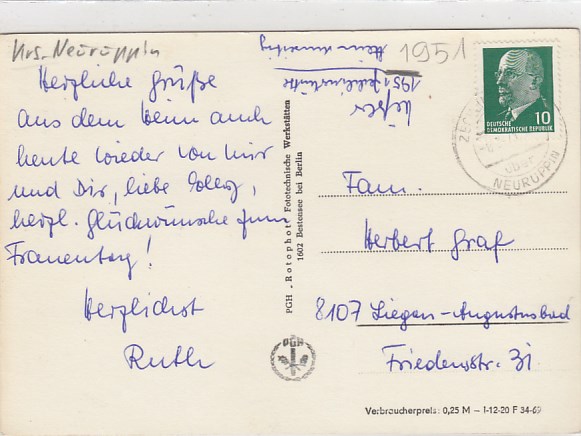 Krs. Neuruppin
Herzliche Grüße
aus dem Heim auch
heute wieder von mir
und Dir, liebe
herzl. Glückwünsche zum
Frauentag!
Herzlichst
Ruth
1951
1951
PGH „Rotophot" Fototechnische Werkstätten
1602 Bestensee bei Berlin
PGH
DEUTSCHE
DEMOKRATISCHE REPUBLIK
10
über
NEURUPPIN
Fam.
Herbert Graf
8107 Liegau-Augustusbad
Friedensstr. 31
Verbraucherpreis: 0,25 M – I-12-20 F 34-69